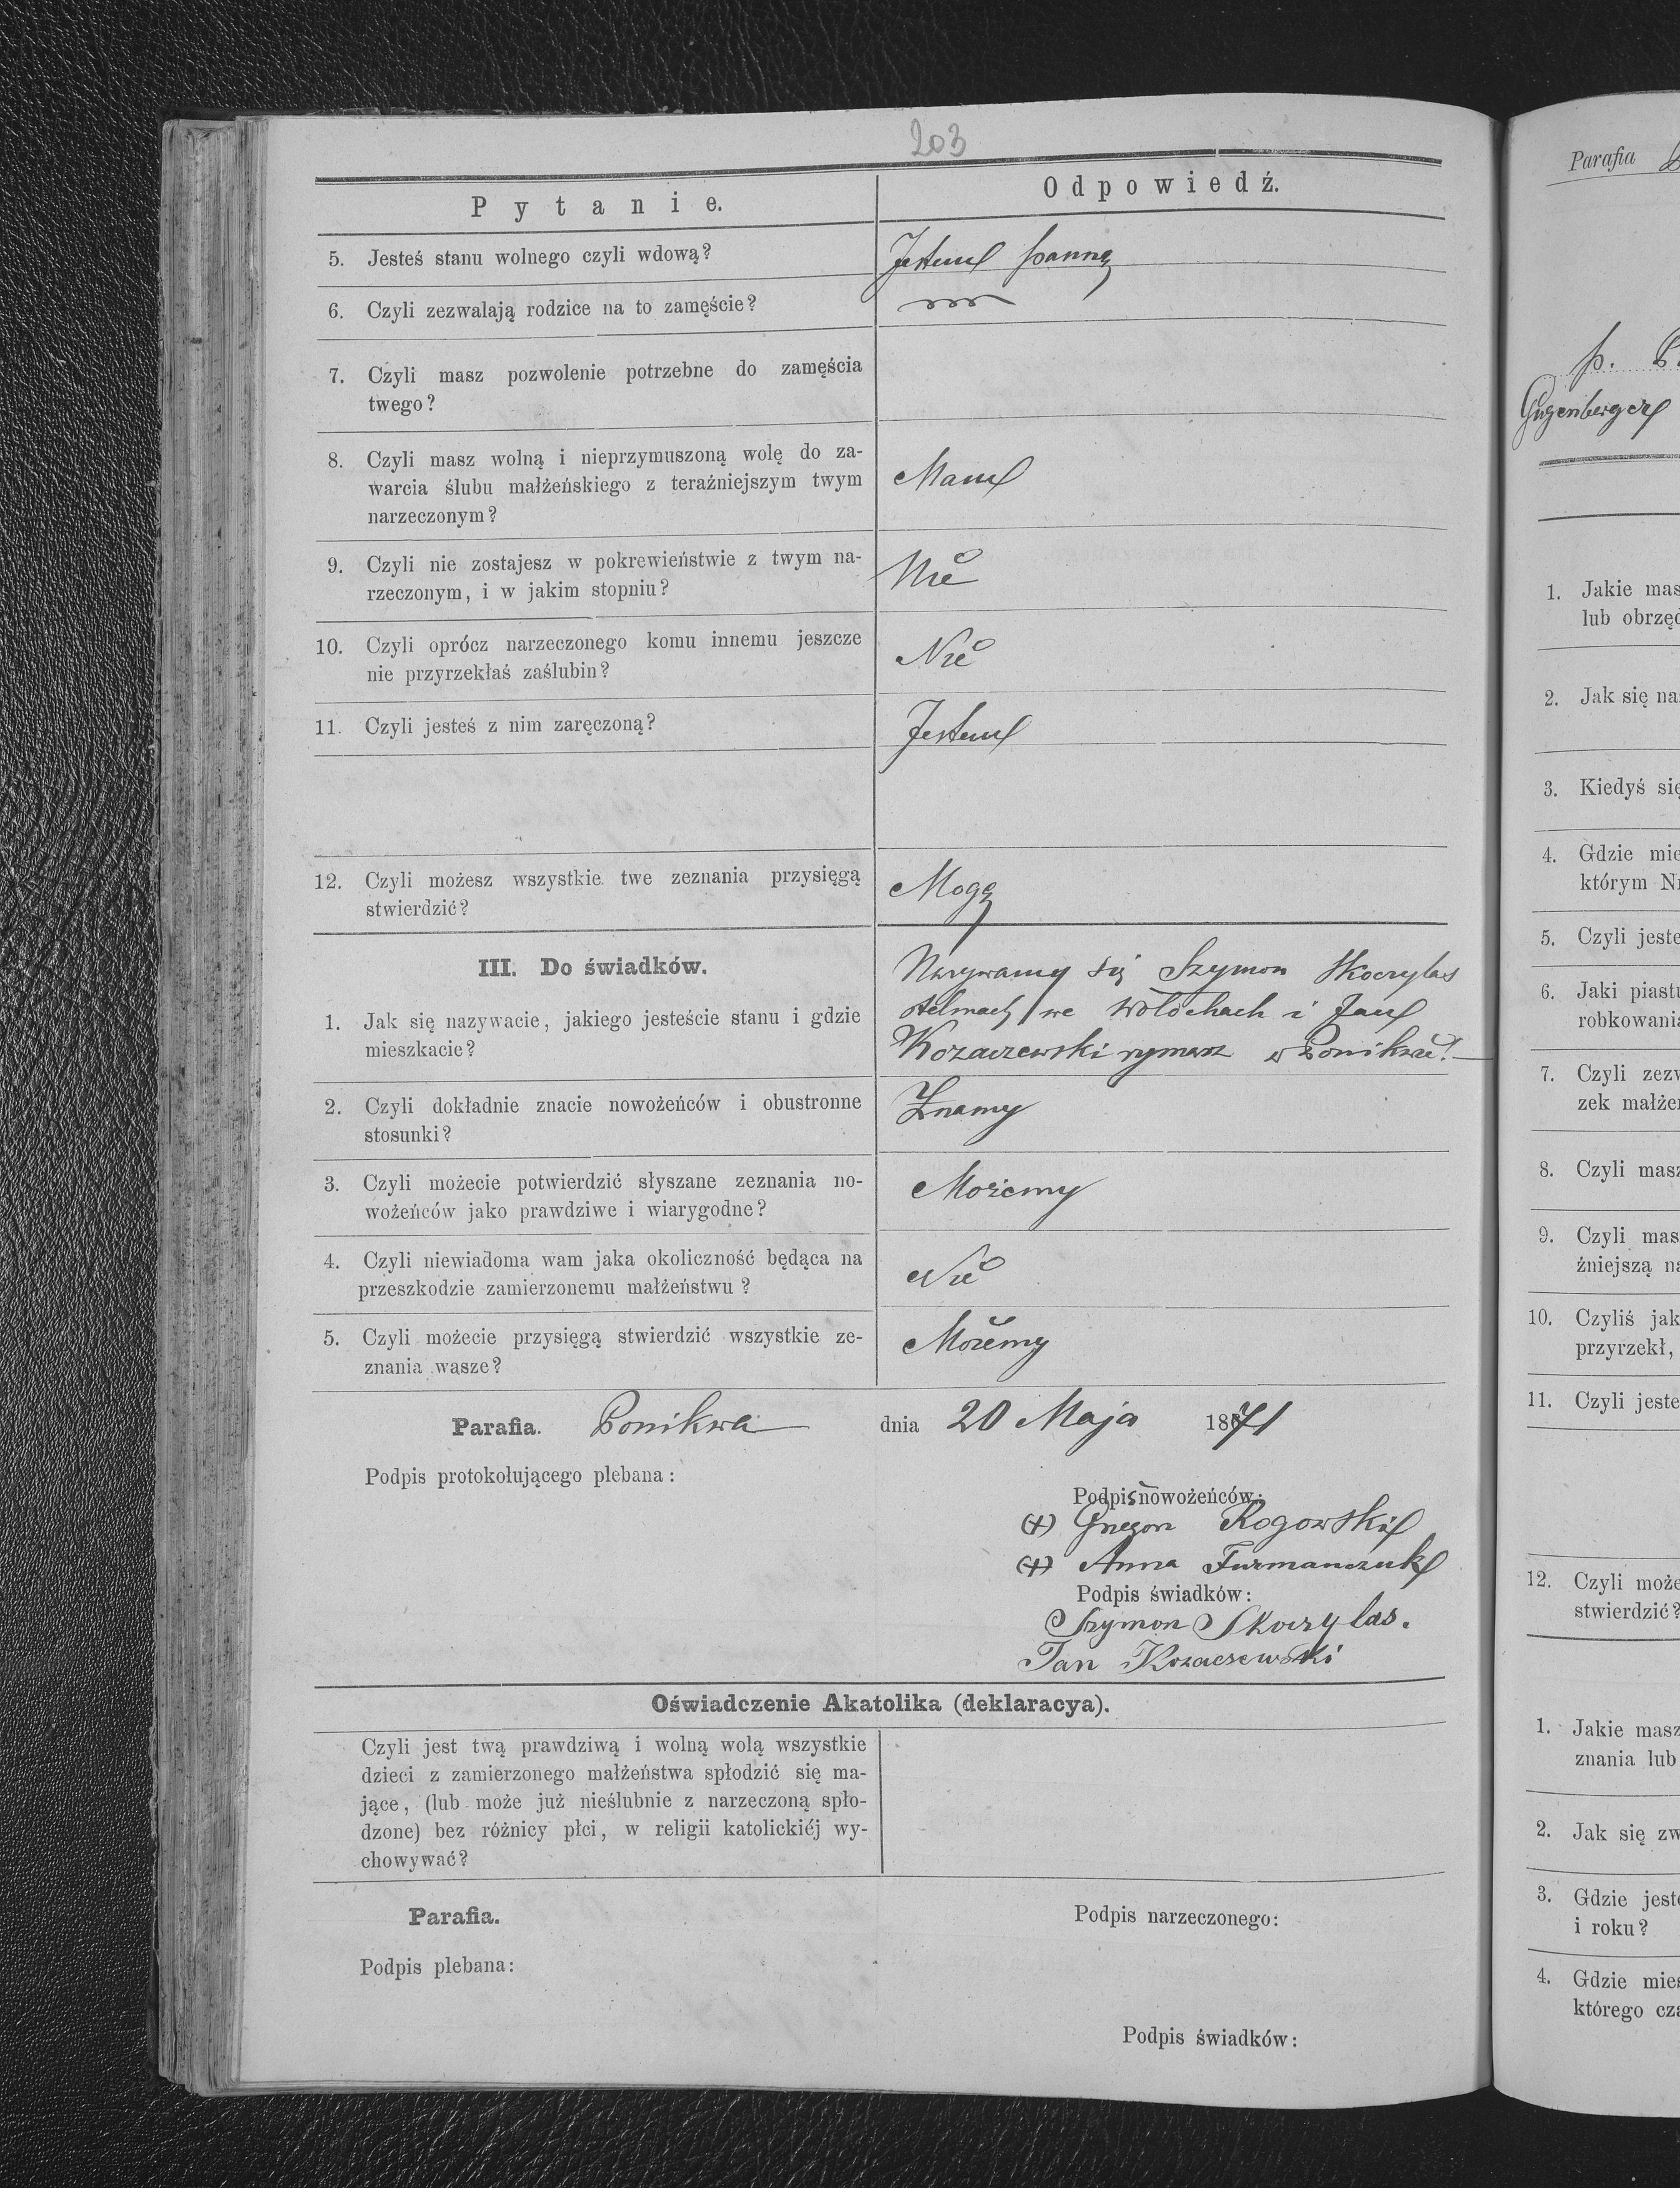 203
Pytanie. Odpowiedź.
5. Jesteś stanu wolnego czyli wdową? Jestem panną
6. Czyli zezwalają rodzice na to zamęście?
7. Czyli masz pozwolenie potrzebne do zamęścia
twego?
8. Czyli masz wolną i nieprzymuszoną wolę do za-
warcia ślubu małżeńskiego z teraźniejszym twym
narzeczonym? Mam
9. Czyli nie zostajesz w pokrewieństwie z twym na-
rzeczonym, i w jakim stopniu? Nie
10. Czyli oprócz narzeczonego komu innemu jeszcze
nie przyrzekłaś zaślubin? Nie
11. Czyli jesteś z nim zaręczoną? Jestem
12. Czyli możesz wszystkie twe zeznania przysięgą
stwierdzić? Mogę
III. Do świadków.
1. Jak się nazywacie, jakiego jesteście stanu i gdzie
mieszkacie?
Nazywamy się Szymon Skoczylas
stelmach we Wołochach i Jan
Kozaczewski rymarz w Ponikwie.
2. Czyli dokładnie znacie nowożeńców i obustronne
stosunki? Znamy
3. Czyli możecie potwierdzić słyszane zeznania no-
wożeńców jako prawdziwe i wiarygodne? Możemy
4. Czyli niewiadoma wam jaka okoliczność będąca na
przeszkodzie zamierzonemu małżeństwu? Nie
5. Czyli możecie przysięgą stwierdzić wszystkie ze-
znania wasze? Możemy
Parafia. Ponikwa dnia 20 Maja 1871
Podpis protokołującego plebana:
Podpis nowożeńców:
(+) Gregor Rogowski
(+) Anna Furmanczuk
Podpis świadków:
Szymon Skoczylas.
Jan Kozaczewski
Oświadczenie Akatolika (deklaracya).
Czyli jest twą prawdziwą i wolną wolą wszystkie
dzieci z zamierzonego małżeństwa spłodzić się ma-
jące, (lub może już nieślubnie z narzeczoną spło-
dzone) bez różnicy płci, w religii katolickiéj wy-
chowywać?
Parafia.
Podpis narzeczonego:
Podpis plebana:
Podpis świadków:
Parafia
p.
Gugenberger
1. Jakie mas
lub obrzęd
2. Jak się na
3. Kiedyś się
4. Gdzie mie
którym Nr
5. Czyli jeste
6. Jaki piastu
robkowania
7. Czyli zezw
zek małżeń
8. Czyli masz
9. Czyli mas
źniejszą na
10. Czyliś jak
przyrzekł,
11. Czyli jeste
12. Czyli może
stwierdzić?
1. Jakie masz
znania lub
2. Jak się zw
3. Gdzie jeste
i roku?
4. Gdzie mies
którego cza